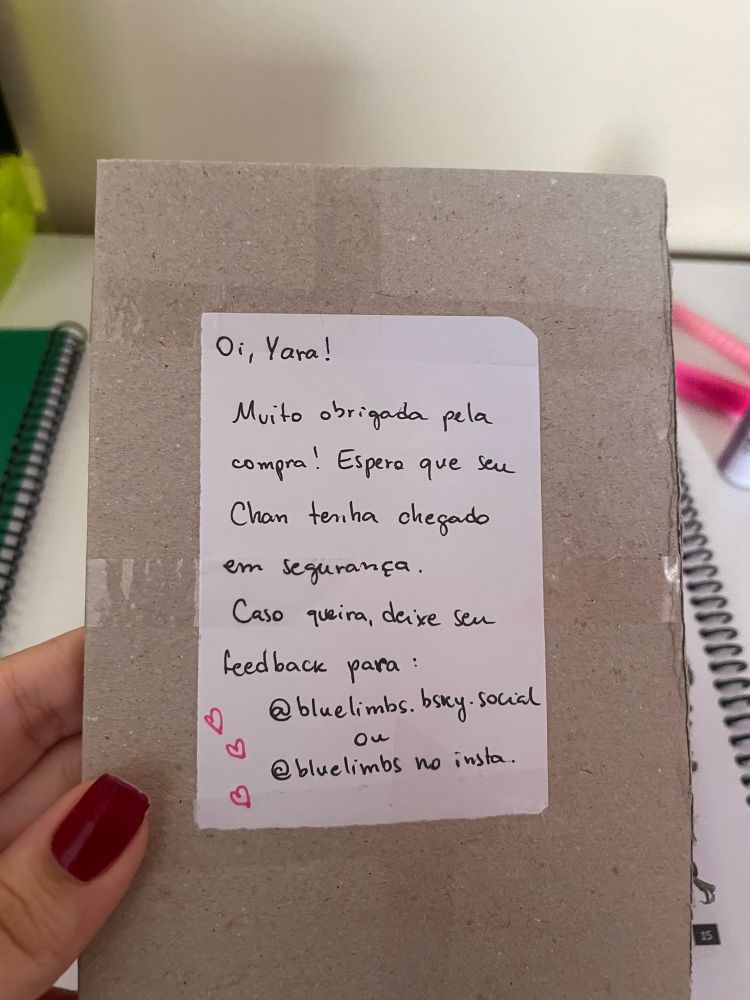 Oi, Yara!
Muito obrigada pela
compra! Espero que seu
Chan tenha chegado
em segurança.
Caso queira, deixe seu
feedback para:
@bluelimbs.bsky.social
ou
@bluelimbs no insta.
15